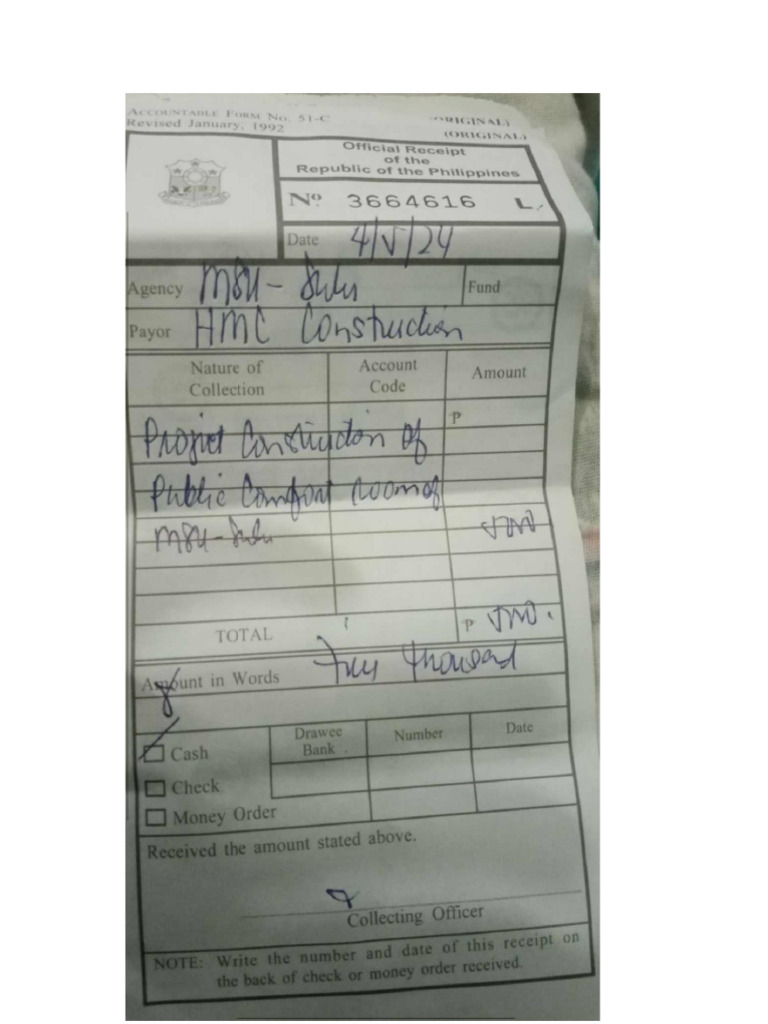 ACCOUNTABLE FORM No. 51-C
Revised January, 1992
(ORIGINAL)
(ORIGINAL)
Official Receipt
of the
Republic of the Philippines
No. 3664616 L
Date 4/5/24
Agency MSU - Sulu Fund
Payor HMC Construction
Nature of Collection Account Code Amount
₱
Project Construction of
Public Comfort Room of
MSU-Sulu
TOTAL ₱
Amount in Words thousand
Cash Drawee Bank Number Date
Check
Money Order
Received the amount stated above.
Collecting Officer
NOTE: Write the number and date of this receipt on
the back of check or money order received.